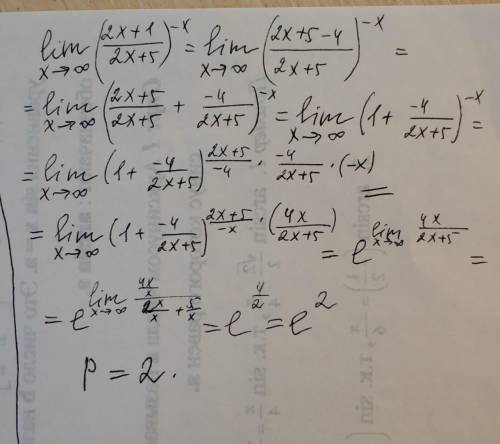 lim x→∞ ((2x+1)/(2x+5))^(-x) = lim x→∞ ((2x+5-4)/(2x+5))^(-x) =
= lim x→∞ ((2x+5)/(2x+5) + (-4)/(2x+5))^(-x) = lim x→∞ (1 + (-4)/(2x+5))^(-x) =
= lim x→∞ (1 + (-4)/(2x+5))^((2x+5)/(-4) · (-4)/(2x+5) · (-x)) =
= lim x→∞ (1 + (-4)/(2x+5))^((2x+5)/(-x) · (4x/(2x+5))) = e^(lim x→∞ 4x/(2x+5)) =
= e^(lim x→∞ (4x/x)/(2x/x + 5/x)) = e^(4/2) = e^2
P = 2.